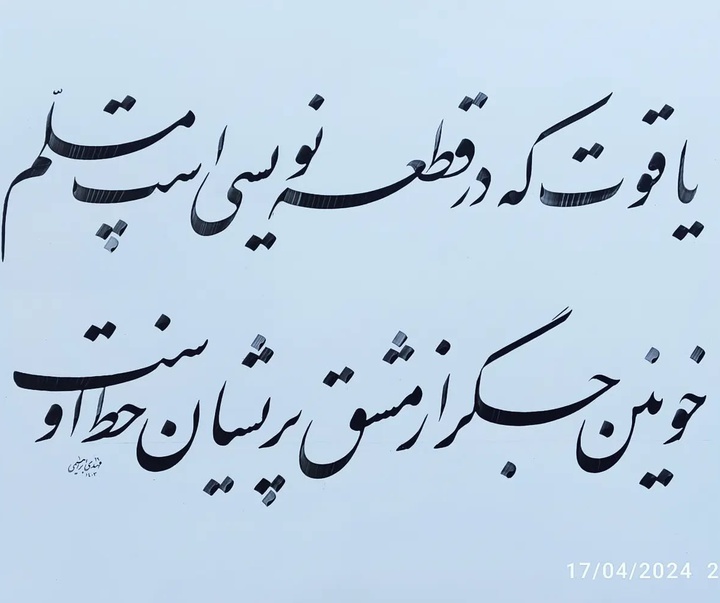 یاقوت که در قطعه نویسی است مسلّم
خونین جگر از مشق پریشان خط اوست
مهدی ابراهیمی
۱۴۰۳
17/04/2024 2